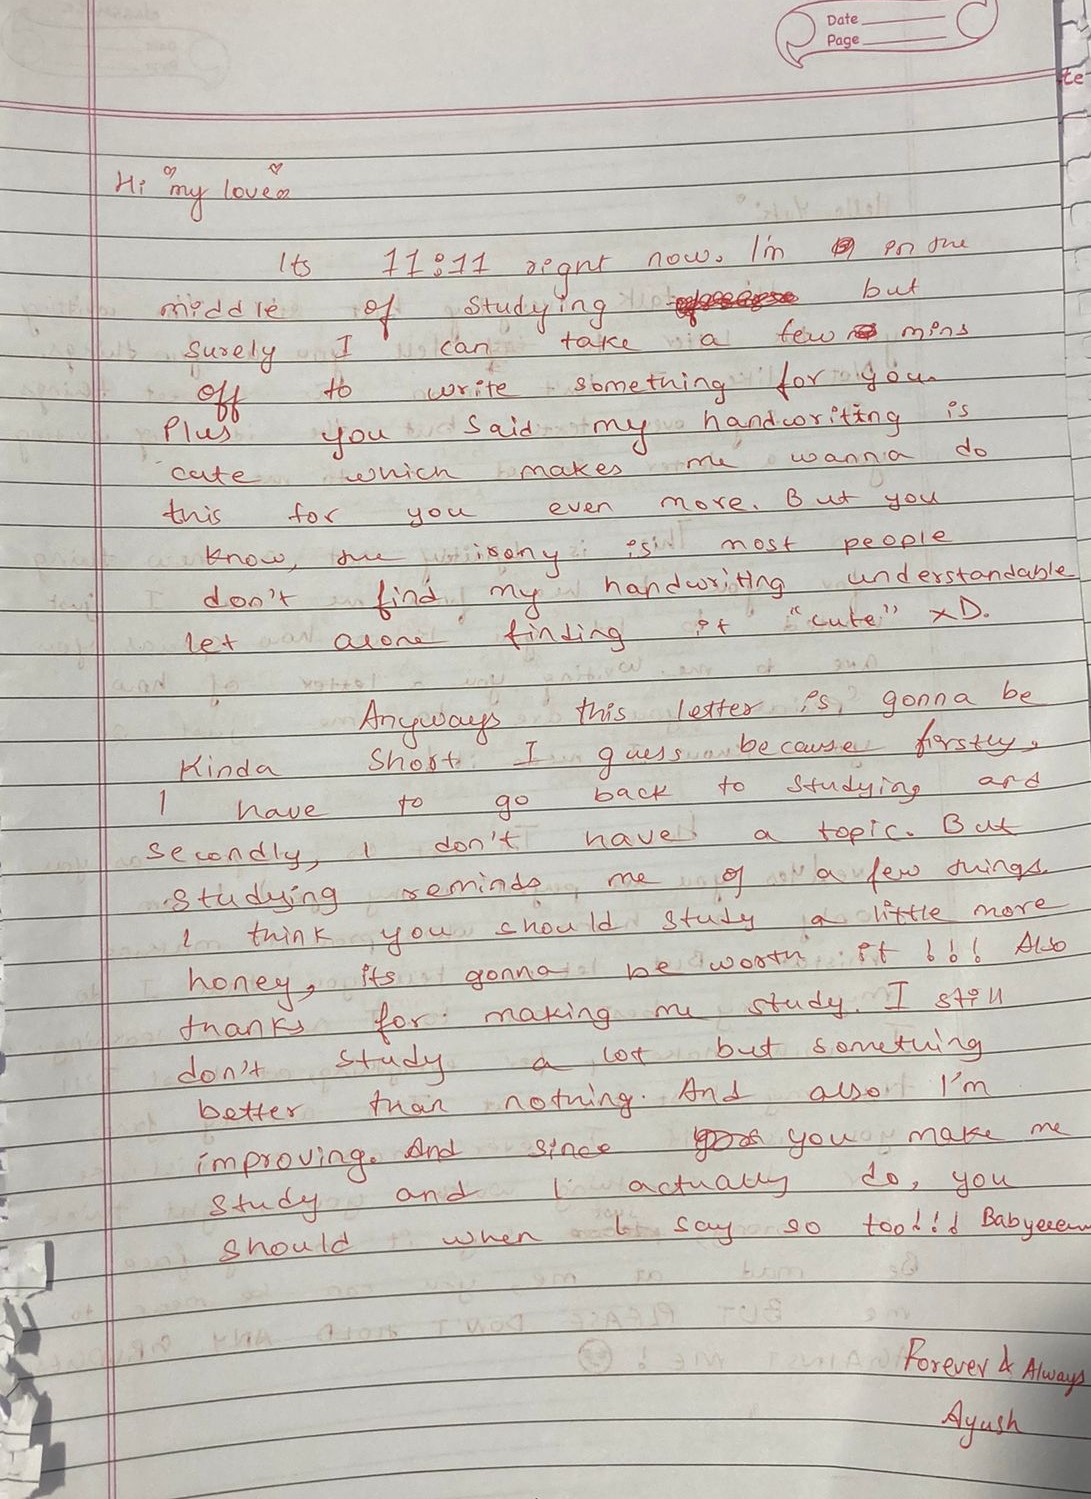 Date
Page
te
Hi my love
Its 11:11 right now. I'm in the
middle of studying but
surely I can take a few mins
off to write something for you.
Plus you said my handwriting is
cute which makes me wanna do
this for you even more. But you
know, the irony is most people
don't find my handwriting understandable
let alone finding it "cute" xD.
Anyways this letter is gonna be
kinda short I guess because firstly,
I have to go back to studying and
secondly, I don't have a topic. But
studying reminds me of a few things.
I think you should study a little more
honey, its gonna be worth it !!! Also
thanks for making me study. I still
don't study a lot but something
better than nothing. And also I'm
improving. And since you make me
study and I actually do, you
should when I say so too!!! Babyeeem
Forever & Always
Ayush